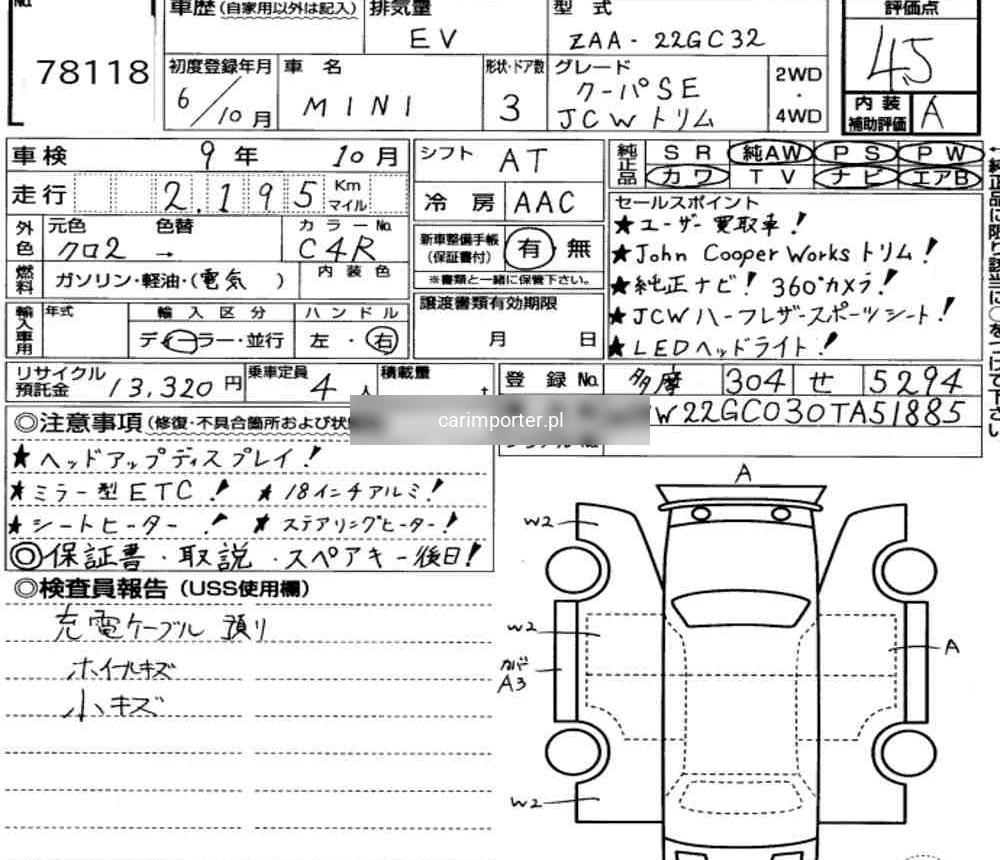 No.
78118
車歴(自家用以外は記入)
排気量
EV
型式
ZAA-22GC32
評価点
4.5
初度登録年月
6/10月
車名
MINI
形状・ドア数
3
グレード
クーパSE
JCWトリム
2WD
・
4WD
内装
補助評価
A
車検 9年 10月
シフト AT
純正品 SR 純AW PS PW
カワ TV ナビ エアB
走行 2,195 Km マイル
冷房 AAC
セールスポイント
★ユーザー買取車!
★John Cooper Works トリム!
★純正ナビ! 360°カメラ!
★JCWハーフレザースポーツシート!
★LEDヘッドライト!
外色 元色 色替 カラーNo.
クロ2 → C4R
新車整備手帳
(保証書付)
有・無
※書類と一緒に保管下さい。
燃料 ガソリン・軽油・(電気 ) 内装色
譲渡書類有効期限
月 日
輸入車用 年式 輸入区分 ハンドル
ディーラー・並行 左・右
リサイクル
預託金
13,320円
乗車定員
4人
積載量
t
登録No. 多摩 304 せ 5294
W22GC030TA51885
carimporter.pl
◎注意事項(修復・不具合箇所および状
★ヘッドアップディスプレイ!
★ミラー型ETC! ★18インチアルミ!
★シートヒーター! ★ステアリングヒーター!
◎保証書・取説・スペアキー後日!
◎検査員報告(USS使用欄)
充電ケーブル預り
ホイールキズ
小キズ
A
W2
W2
カバ
A3
A
W2
←純正品に限り該当に○をつけて下さい